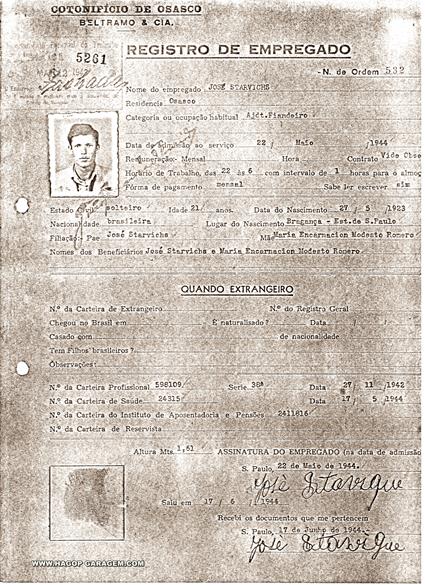 COTONIFÍCIO DE OSASCO
BELTRAMO & CIA.
5261
REGISTRO DE EMPREGADO
N. de Ordem 532
Nome do empregado JOSÉ STARVICHS
Residencia Osasco
Categoria ou ocupação habitual Ajdt.Fiandeiro
Data de admissão ao serviço 22 / Maio / 1944
Remuneração- Mensal Hora Contrato Vide Obse
Horário de Trabalho, das 22 às 6 com intervalo de 1 hora para o almoç
Fórma de pagamento mensal Sabe ler escrever sim
Estado Civil solteiro Idade 21 anos. Data do Nascimento 27 / 5 / 1923
Nacionalidade brasileira Lugar do Nascimento Bragança - Est.de S.Paulo
Filiação:- Pae José Starvichs Mãe Maria Encarnacion Modesto Romero
Nomes dos Beneficiários José Starvichs e Maria Encarnacion Modesto Romero
QUANDO EXTRANGEIRO
N.º da Carteira de Extrangeiro N.º do Registro Geral
Chegou no Brasil em É naturalisado? Data /
Casado com de nacionalidade
Tem Filhos brasileiros?
Observações:
N.º da Carteira Profissional 598109 Serie 38ª Data 27 / 11 / 1942
N.º da Carteira de Saúde 24315 Data 17 / 5 / 1944
N.º da Carteira do Instituto de Aposentadoria e Pensões 2411816
N.º da Carteira de Reservista
Altura Mts. 1,61 ASSINATURA DO EMPREGADO (na data de admissão
S. Paulo, 22 de Maio de 1944.
José Starvigue
Saiu em 17 / 6 / 1944
Recebi os documentos que me pertencem
S. Paulo, 17 de Junho de 1944.
José Starvigue
WWW.HAGOP GARAGEM.COM